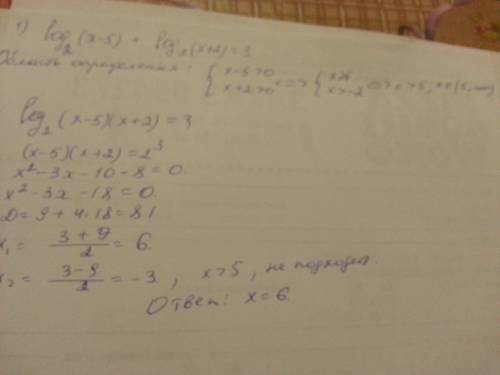 1) log₂(x-5) + log₂(x+2)=3
Область определения: { x-5>0 x+2>0 <=> { x>5 x>-2 <=> x>5,
log₂ (x-5)(x+2) = 3
(x-5)(x+2)=2³
x²-3x-10-8=0.
x²-3x-18=0.
D=9+4·18=81.
x₁ = (3+9)/2 = 6.
x₂ = (3-9)/2 = -3, x>5, не подходит.
Ответ: x=6.